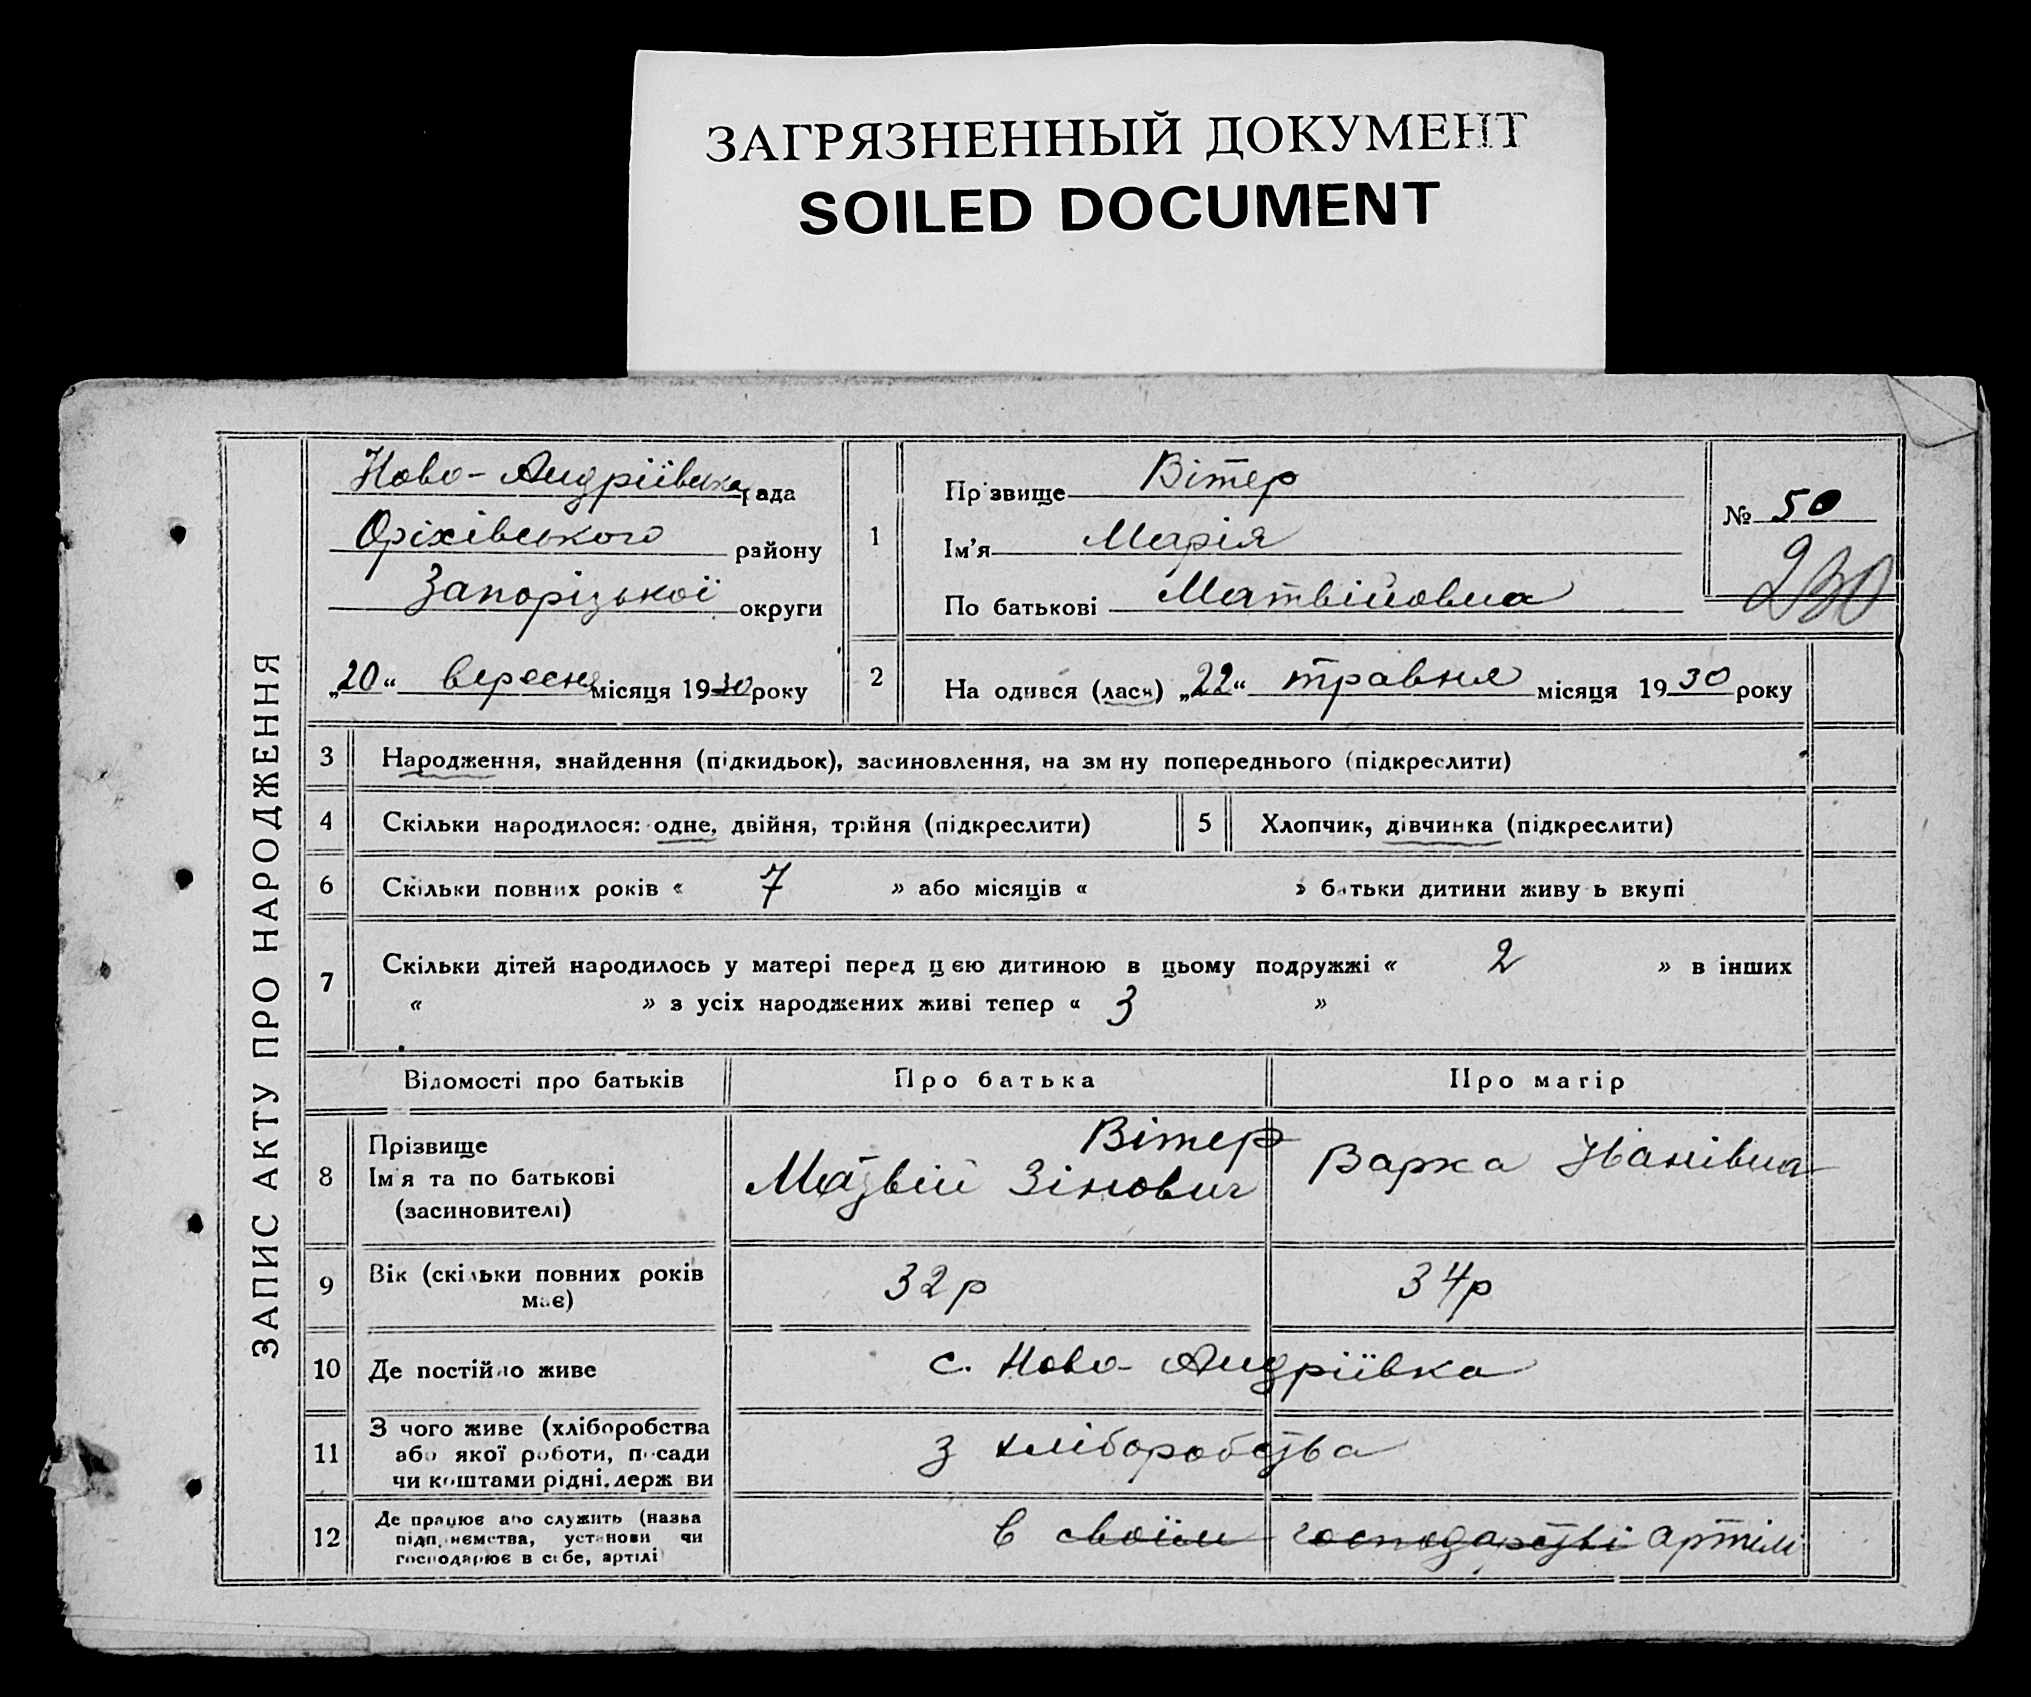 ЗАГРЯЗНЕННЫЙ ДОКУМЕНТ
SOILED DOCUMENT
ЗАПИС АКТУ ПРО НАРОДЖЕННЯ
Ново-Андріївська рада
Оріхівського району
Запоріцької округи
„20“ вересня місяця 1930 року
1
Прізвище Вітер
Ім'я Марія
По батькові Матвійовна
№ 50
230
2
На одився (лася) „22“ травня місяця 1930 року
3 Народження, знайдення (підкидьок), засиновлення, на зм ну попереднього (підкреслити)
4 Скільки народилося: одне, двійня, трійня (підкреслити)
5 Хлопчик, дівчинка (підкреслити)
6 Скільки повних років « 7 » або місяців « » батьки дитини живу ь вкупі
7 Скільки дітей народилось у матері перед цією дитиною в цьому подружжі « 2 » в інших
« » з усіх народжених живі тепер « 3 »
Відомості про батьків
Про батька
Про матір
8
Прізвище
Ім'я та по батькові
(засиновителі)
Вітер
Матвій Зінович
Варка Іванівна
9
Вік (скільки повних років
має)
32 р
34 р
10 Де постійно живе
с. Ново-Андріївка
11
З чого живе (хліборобства
або якої роботи, посади
чи коштами рідні, держ ви
з хліборобства
12
Де працює або служить (назва
підп иємства, установи чи
господарює в себе, артілі
в своїм господарстві артілі